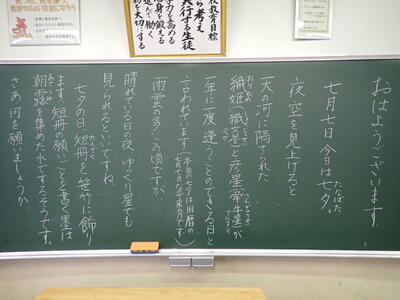 教育目標
ら考え
実行する生徒
学力を高める
心身を鍛える
進んで働く
物を大切にする
おはようございます。
七月七日 今日は七夕。
たなばた
夜空を見上げると
天の川に隔てられた
織姫(織女星)と彦星(牽牛星)が
一年に一度逢うことのできる日と
言われています(本当の七夕は旧暦の
七月七日なので来月です)
雨雲の多いこの頃ですが
晴れている日の夜、ゆっくり星でも
見られるといいですね。
七夕の日、短冊を笹竹に飾り
たんざく
ます。短冊の願いごとを書く墨は
朝露を集めた水でするそうです。
さあ、何を願いましょうか。